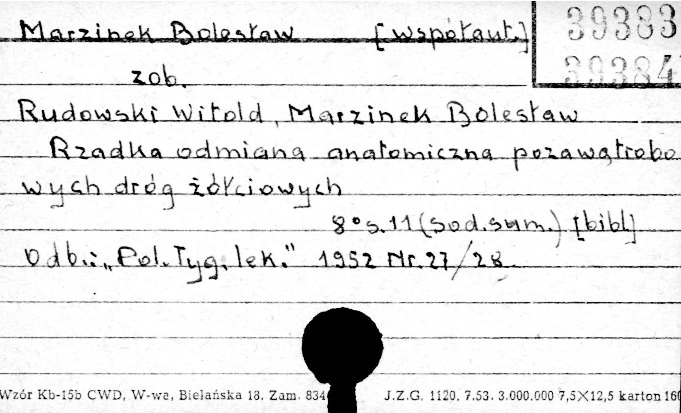 Marzinek Bolesław [współaut.]
39383
39384
zob.
Rudowski Witold, Marzinek Bolesław
Rzadka odmiana anatomiczna pozawątrobo
wych dróg żółciowych
8° s. 11 (sod. sum.) [bibl]
Odb.: „Pol. Tyg. lek." 1952 Nr. 27/28
Wzór Kb-15b CWD, W-wa, Bielańska 18. Zam. 834 J.Z.G. 1120. 7.53. 3.000.000 7,5×12,5 karton 160